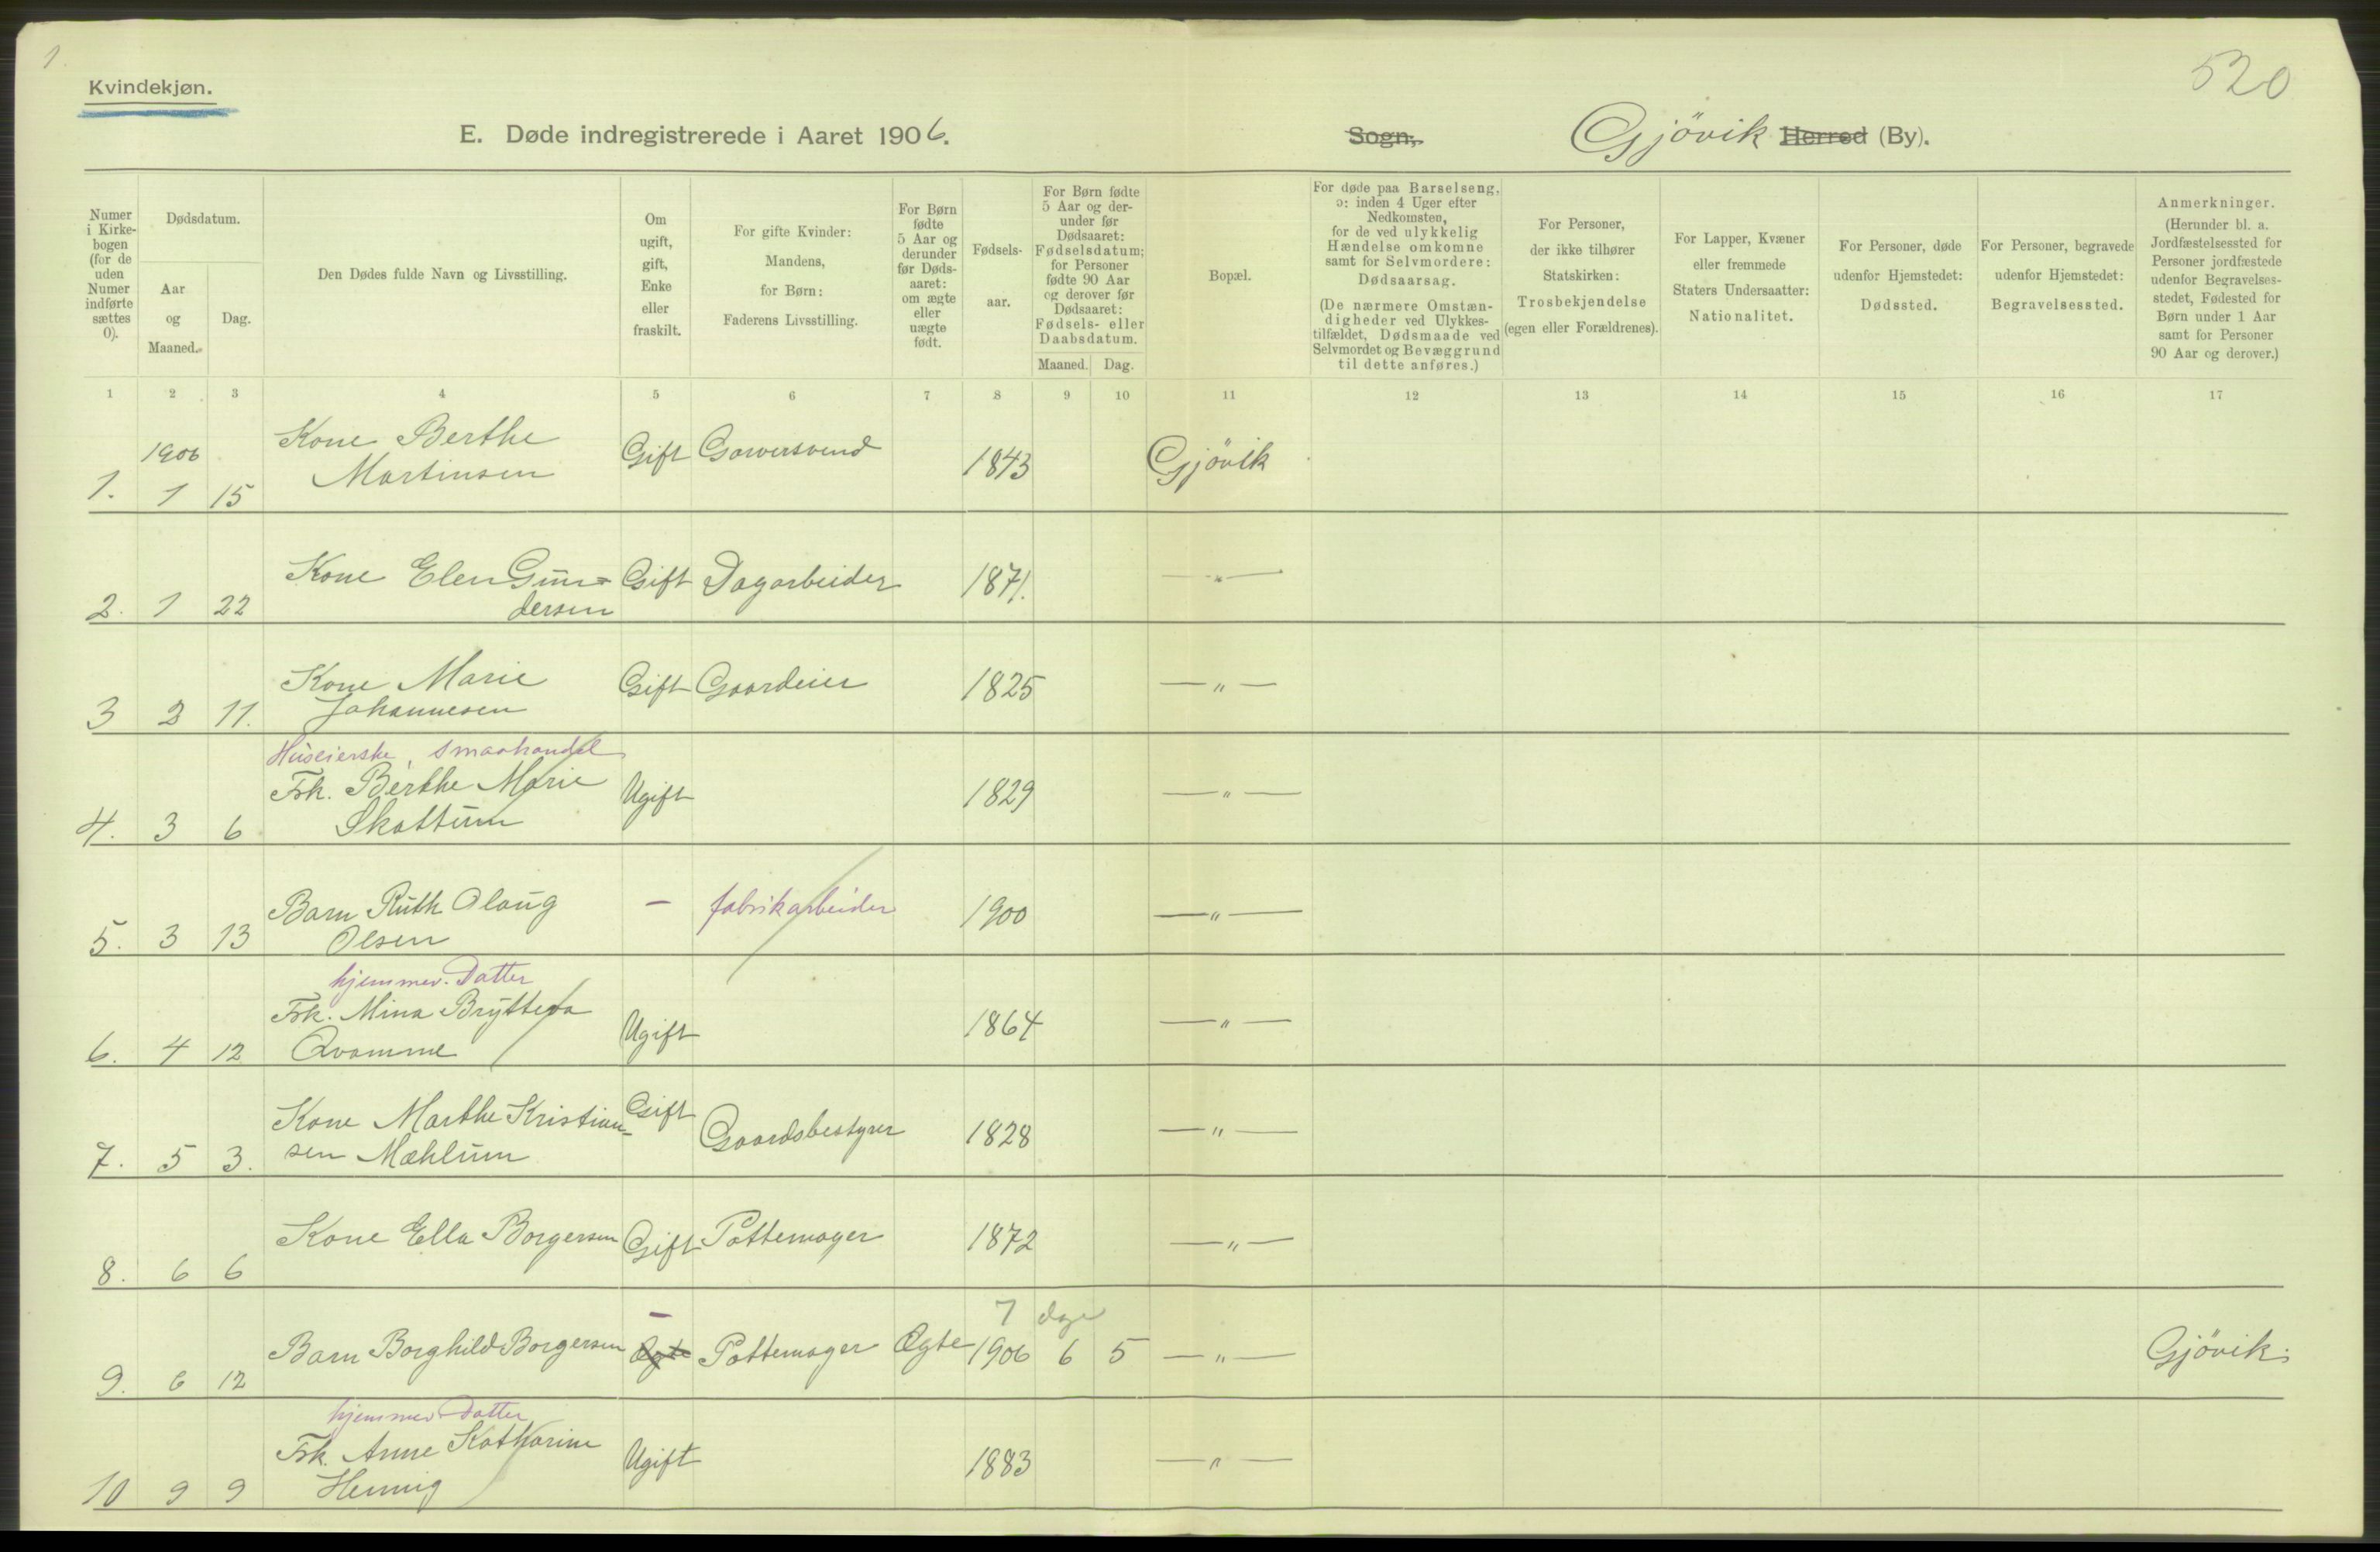 1.
520
Kvindekjøn.
E. Døde indregistrerede i Aaret 1906.
Sogn, Gjövik Herred (By).
Numer
i Kirke-
bogen
(for de
uden
Numer
indførte
sættes
0).
Dødsdatum.
Aar
og
Maaned.
Dag.
Den Dødes fulde Navn og Livsstilling.
Om
ugift,
gift,
Enke
eller
fraskilt.
For gifte Kvinder:
Mandens,
for Børn:
Faderens Livsstilling.
For Børn
fødte
5 Aar og
derunder
før Døds-
aaret:
om ægte
eller
uægte
født.
Fødsels-
aar.
For Børn fødte
5 Aar og der-
under før
Dødsaaret:
Fødselsdatum;
for Personer
fødte 90 Aar
og derover før
Dødsaaret:
Fødsels- eller
Daabsdatum.
Maaned. Dag.
Bopæl.
For døde paa Barselseng,
ɔ: inden 4 Uger efter
Nedkomsten,
for de ved ulykkelig
Hændelse omkomne
samt for Selvmordere:
Dødsaarsag.
(De nærmere Omstæn-
digheder ved Ulykkes-
tilfældet, Dødsmaade ved
Selvmordet og Bevæggrund
til dette anføres.)
For Personer,
der ikke tilhører
Statskirken:
Trosbekjendelse
(egen eller Forældrenes).
For Lapper, Kvæner
eller fremmede
Staters Undersaatter:
Nationalitet.
For Personer, døde
udenfor Hjemstedet:
Dødssted.
For Personer, begravede
udenfor Hjemstedet:
Begravelsessted.
Anmerkninger.
(Herunder bl. a.
Jordfæstelsessted for
Personer jordfæstede
udenfor Begravelses-
stedet, Fødested for
Børn under 1 Aar
samt for Personer
90 Aar og derover.)
1 2 3 4 5 6 7 8 9 10 11 12 13 14 15 16 17
1906
Kone Berthe Gift Garversvend 1843 Gjövik
1. 1 15 Martinsen
Kone Elen Gun= Gift Dagarbeider 1871. — " —
2. 1 22 dersen
Kone Marie Gift Gaardeier 1825 — " —
3 2 11. Johannesen
Huseierske, Smaahandel
Frk. Berthe Marie Ugift 1829 — " —
4. 3 6 Skattum
Barn Ruth Olaug — fabrikarbeider 1900 — " —
5. 3 13 Olsen
hjemmev. Datter
Frk. Mina Brytteva Ugift 1864 — " —
6. 4 12 Qvamme
Kone Marthe Kristian- Gift Gaardsbestyrer 1828 — " —
7. 5 3. sen Mæhlum
Kone Ella Borgersen Gift Pottemager 1872 — " —
8. 6 6
— 7 dage
Barn Borghild Borgersen Ægte Pottemager Ægte 1906 6 5 — " — Gjövik.
9. 6 12
hjemmev Datter
Frk. Anne Katharine Ugift 1883 — " —
10 9 9 Hennig